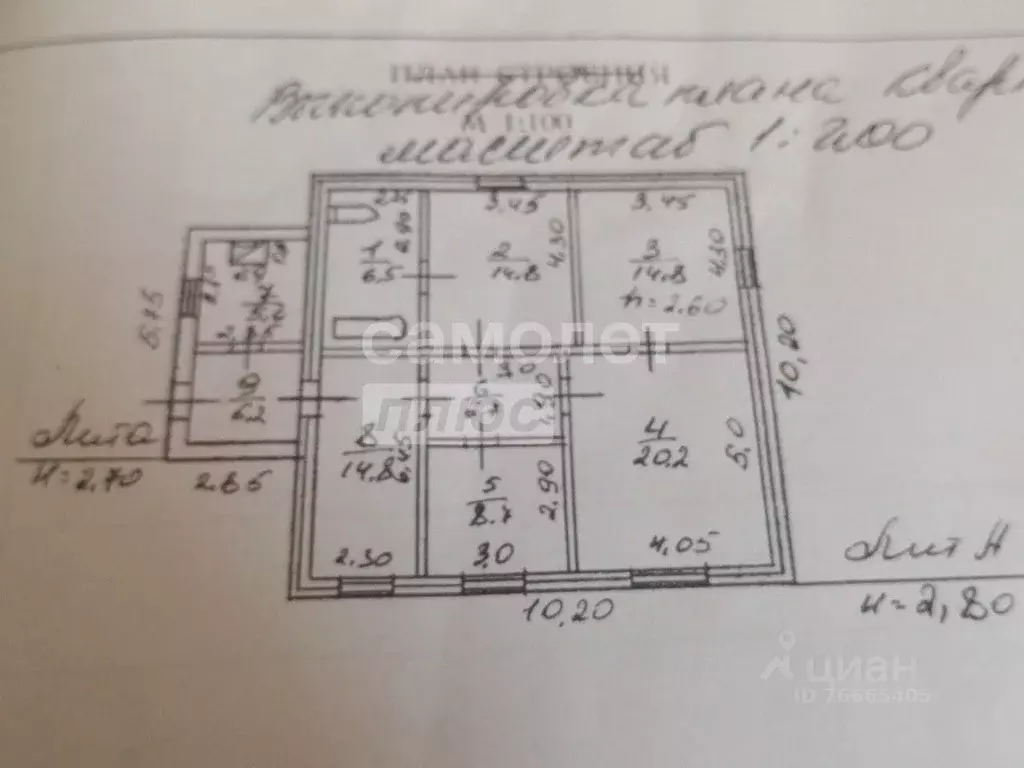 ПЛАН СТРОЕНИЯ
Выкопировка плана
М 1:100
масштаб 1:200
2.25
2.90
1
6.5
3.45
4.30
2
14.8
3.45
4.30
3
14.8
h=2.60
5,15
самолет
плюс
3.0
1.90
10,20
Лит а
н=2,70
2.65
8
14.8
6.45
4
20.2
5,0
5
8.7
2.90
2.30
3,0
4,05
10,20
Лит А
н=2,80
циан
ID 76665405